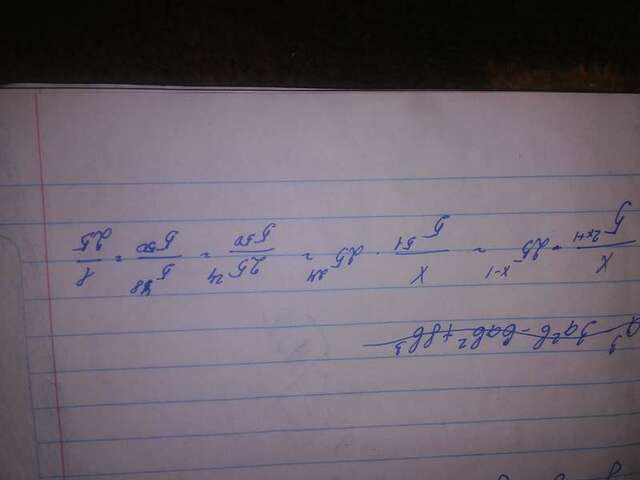 a³ 3a²b - 6ab² + 8b³
x/5^(2x+1) · 25^(x-1) = x/5^51 · 25^24 = 25^24/5^50 = 5^48/5^50 = 1/25